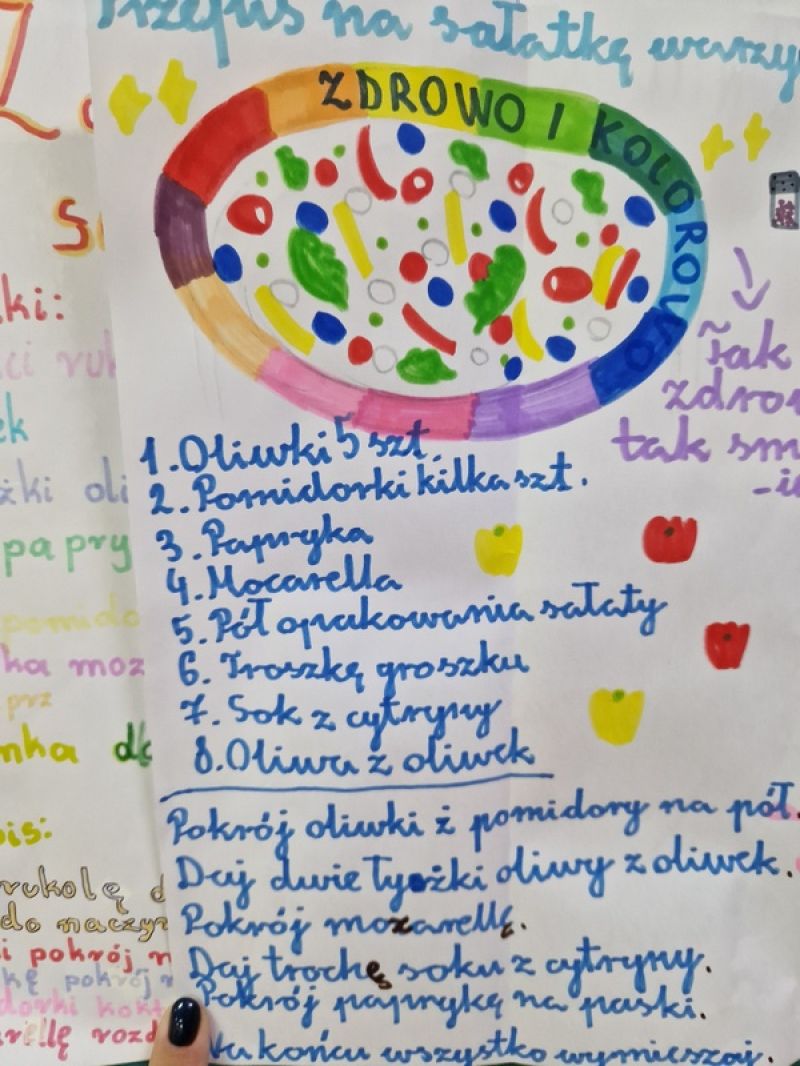 Przepis na sałatkę warzy
ZDROWO I KOLOROWO
Tak
zdro
tak sm
1. Oliwki 5 szt.
2. Pomidorki kilka szt.
3. Papryka
4. Mocarella
5. Pół opakowania sałaty
6. Troszkę groszku
7. Sok z cytryny
8. Oliwa z oliwek
Pokrój oliwki ż pomidory na pół.
Daj dwie łyżki oliwy z oliwek.
Pokrój mozarellę.
Daj trochę soku z cytryny.
Pokrój paprykę na paski.
Na końcu wszystko wymieszaj.
ki:
ci ruk
ek
żki oli
papry
pomido
ka moz
prz
nka do
is:
rukolę d
do naczyn
i pokrój n
kę pokrój
dorki kokt
rellę rozd